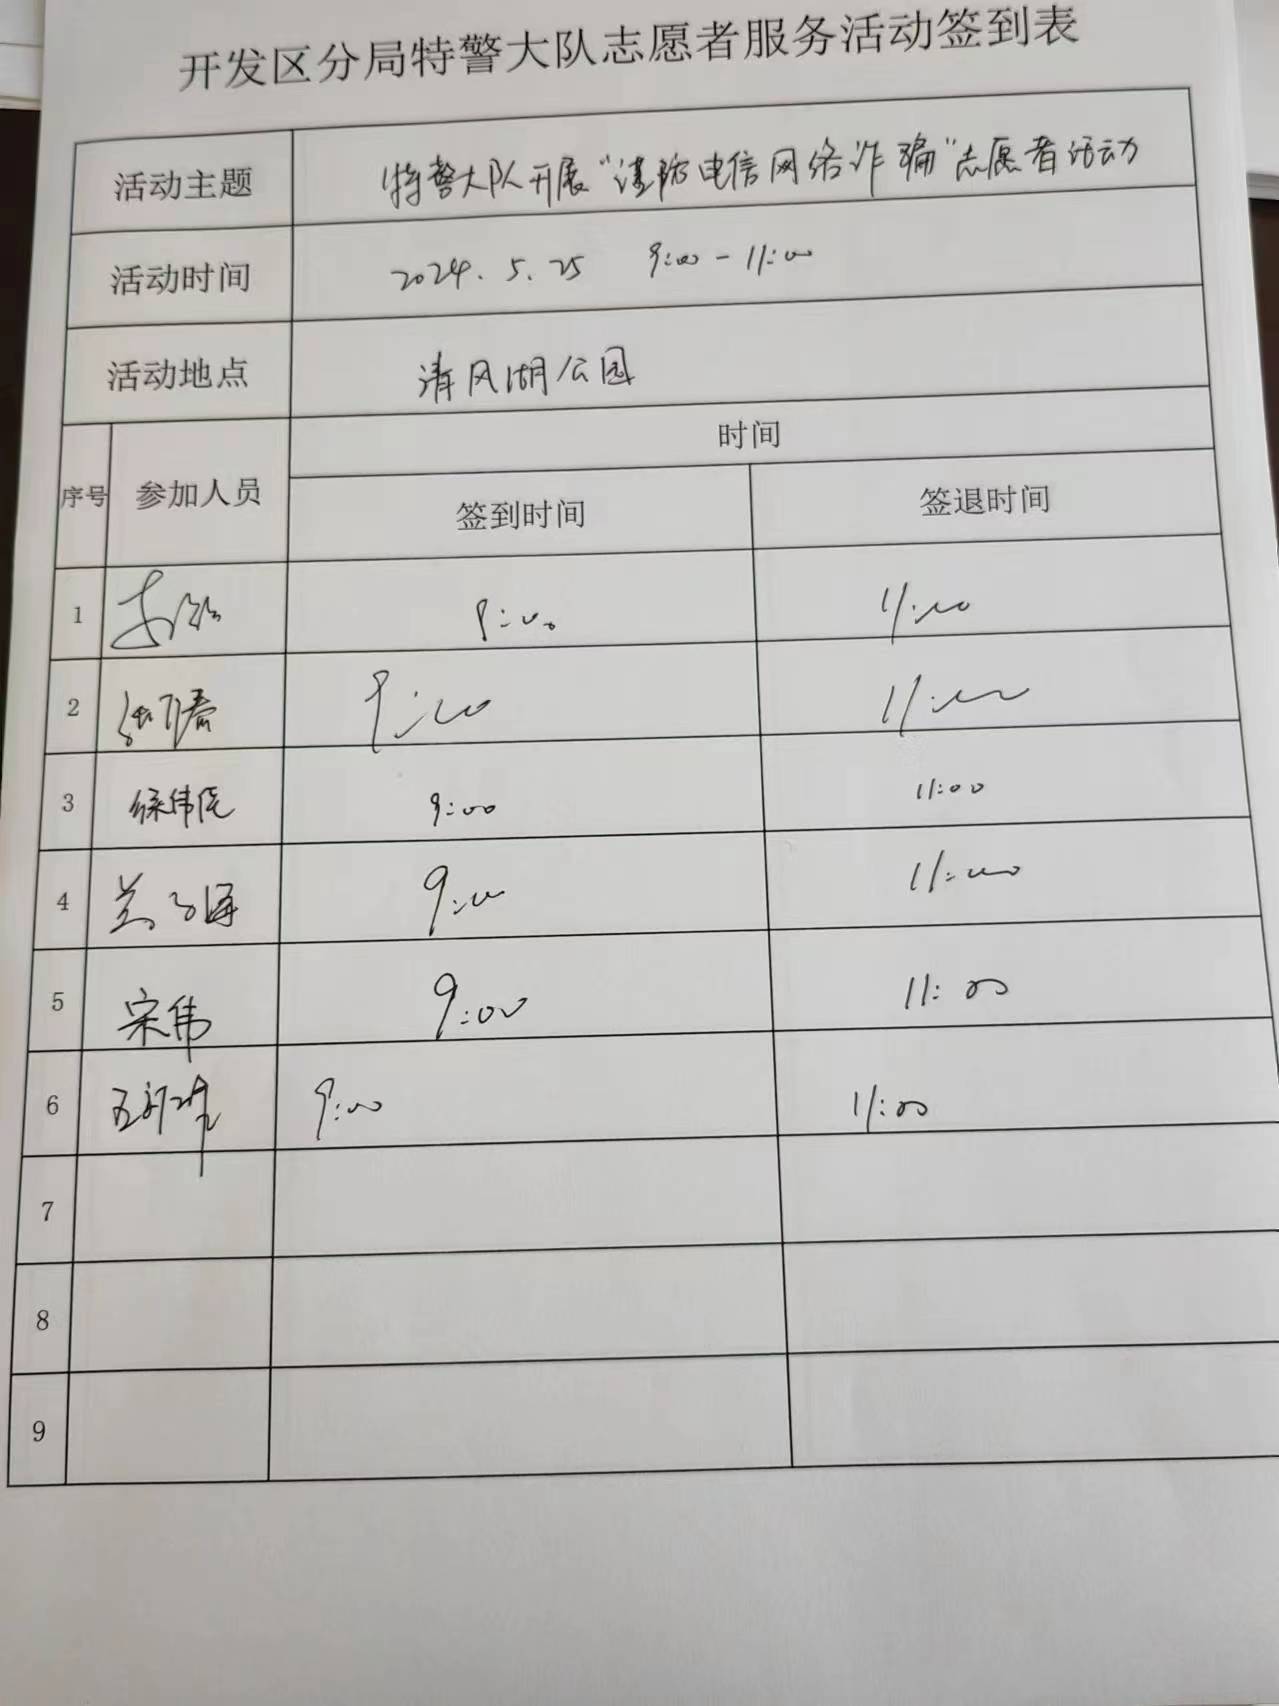 开发区分局特警大队志愿者服务活动签到表
活动主题 特警大队开展“谨防电信网络诈骗”志愿者活动
活动时间 2024.5.25 9:00-11:00
活动地点 清风湖公园
序号 参加人员 时间
签到时间 签退时间
1 9:00 11:00
2 9:00 11:00
3 徐伟 9:00 11:00
4 9:00 11:00
5 宋伟 9:00 11:00
6 9:00 11:00
7
8
9